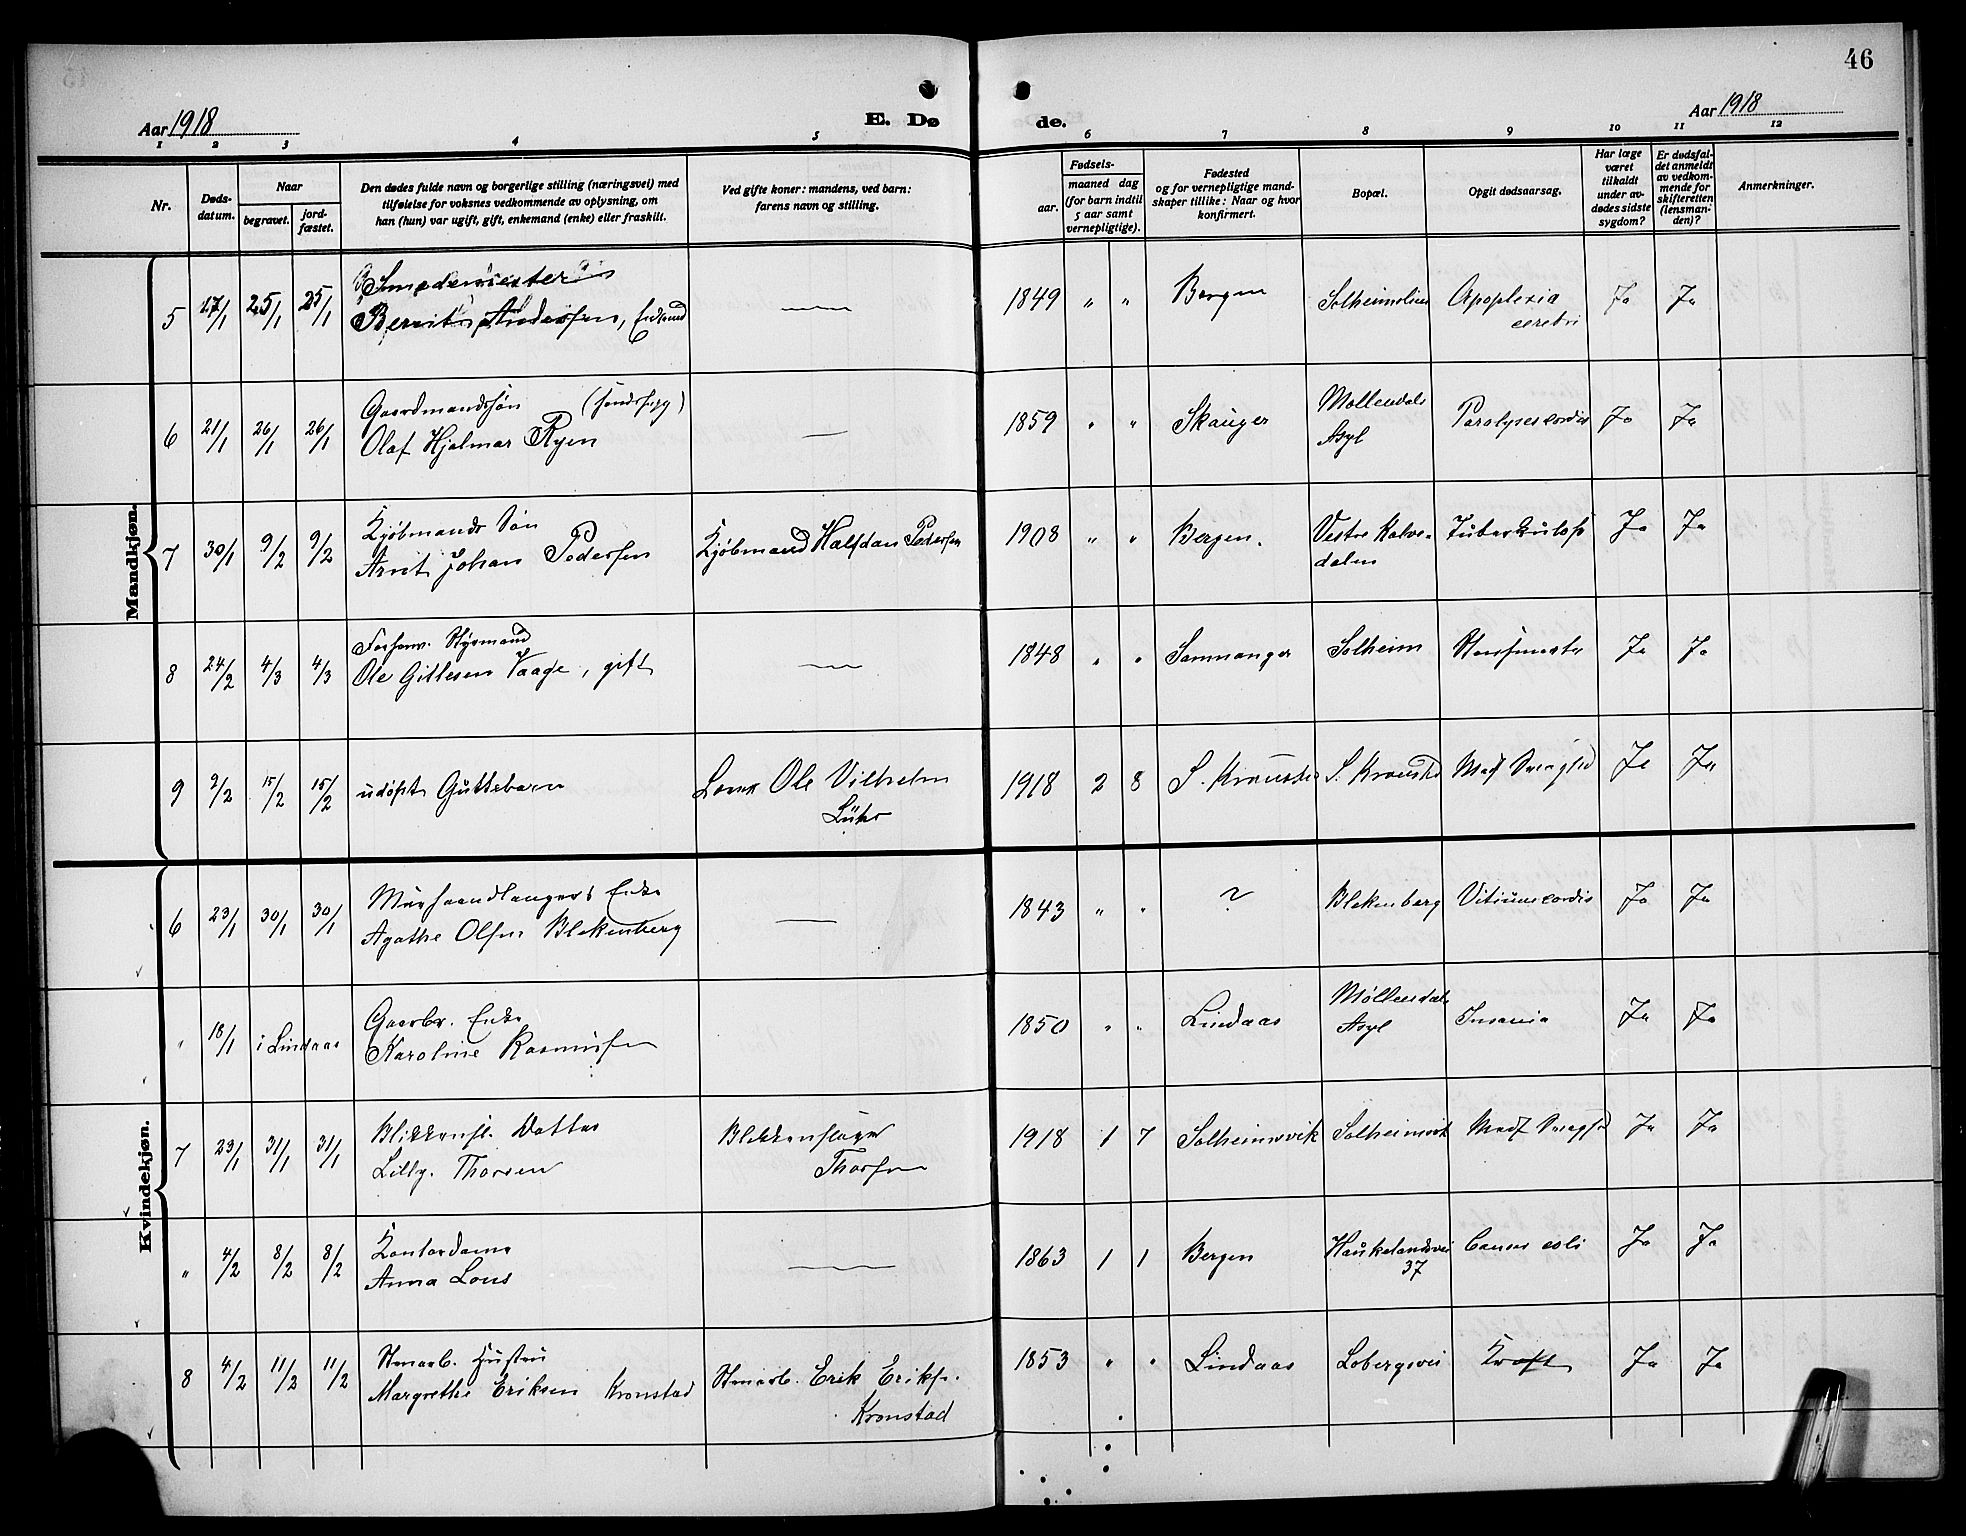 46
Aar 1918
E. Dø
de.
Aar 1918
1 2 3 4 5 6 7 8 9 10 11 12
Nr.
Døds-
datum.
Naar
begravet.
jord-
fæstet.
Den dødes fulde navn og borgerlige stilling (næringsvei) med
tilføielse for voksnes vedkommende av oplysning, om
han (hun) var ugift, gift, enkemand (enke) eller fraskilt.
Ved gifte koner: mandens, ved barn:
farens navn og stilling.
Fødsels-
aar.
maaned dag
(for barn indtil
5 aar samt
vernepligtige).
Fødested
og for vernepligtige mand-
skaper tillike: Naar og hvor
konfirmert.
Bopæl.
Opgit dødsaarsag.
Har læge
været
tilkaldt
under av-
dødes sidste
sygdom?
Er dødsfal-
det anmeldt
av vedkom-
mende for
skifteretten
(lensman-
den)?
Anmerkninger.
Mandkjøn.
Smedemester
5 17/1 25/1 25/1 Andersen, — 1849 " " Bergen Apoplexia Ja Ja
cerebri
Gaardmandssøn
6 21/1 26/1 26/1 Olaf Hjalmar Ryen — 1859 " " Skauger Møllendals Ja Ja
Asyl
Kjøbmands Søn
7 30/1 9/2 9/2 Arnt Johan Pedersen Kjøbmand Halfdan Pedersen 1908 " " Bergen. Vestre Kalve- Tuberkulose Ja Ja
dalen
Styrmand
8 24/2 4/3 4/3 Ole Gitlesen Vaage, gift — 1848 " " Samnanger Solheim Ja Ja
9 9/2 15/2 15/2 udøpt Guttebarn Ole Vilhelm 1918 2 8 Ja Ja
Lühr
Kvindekjøn.
Murhaandlangers Enke
6 23/1 30/1 30/1 Agathe Olsen Blekenberg — 1843 " " ? Blekenberg Vitium cordis Ja Ja
Gaardbr. Enke
" 18/1 i Lindaas Karoline Rasmussen 1850 " " Lindaas Møllendals Insania Ja Ja
Asyl
Blikkensl. Datter Blikkenslager
7 23/1 31/1 31/1 Lilly Thorsen Thorsen 1918 1 7 Solheimsvik Solheimsvik Ja Ja
Kontordame
" 4/2 8/2 8/2 Anna Lous — 1863 1 1 Bergen Haukelandsvei Cancer coli Ja Ja
37
Stenarb. Hustru
8 4/2 11/2 11/2 Margrethe Eriksen Kronstad Stenarb. Erik Eriks. 1853 " " Lindaas Lobergsvei Kræft Ja Ja
Kronstad